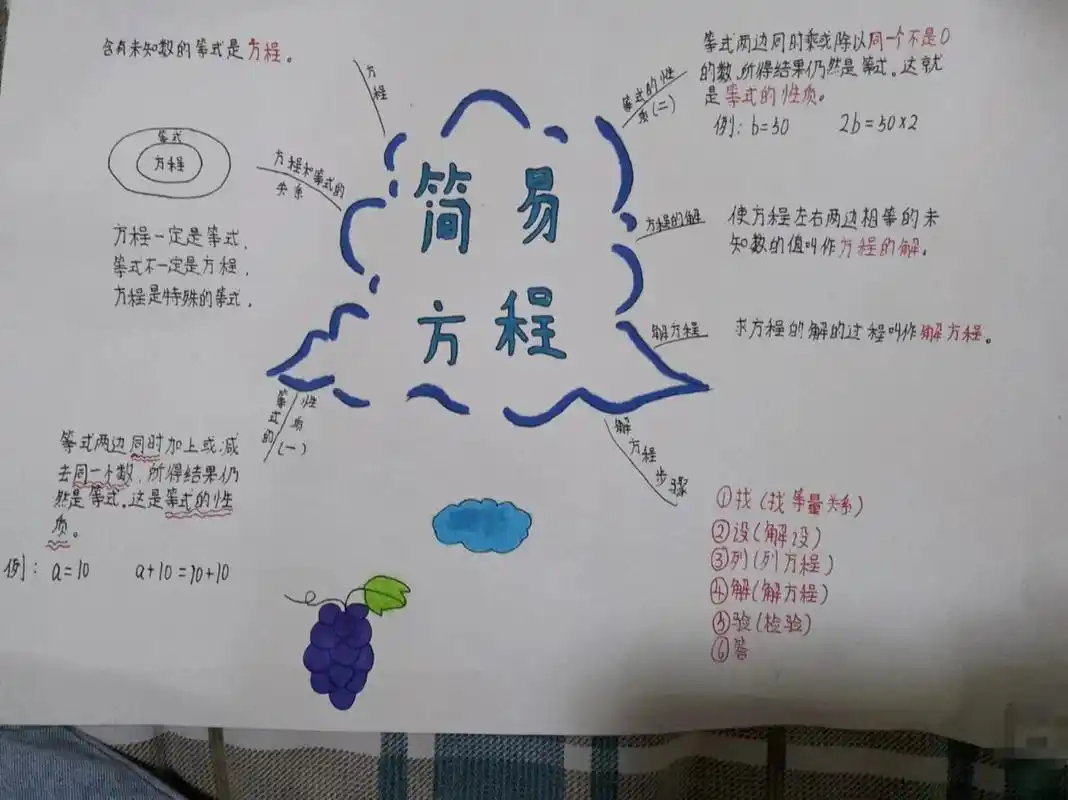 含有未知数的等式是方程。
方程
等式
方程
方程和等式的
关系
方程一定是等式，
等式不一定是方程，
方程是特殊的等式。
等式的
性质(一)
等式两边同时加上或减
去同一个数，所得结果仍
然是等式。这是等式的性
质。
例：a=10 a+10=10+10
简易
方程
等式的性
质(二)
等式两边同时乘或除以同一个不是0
的数，所得结果仍然是等式。这就
是等式的性质。
例：b=50 2b=50×2
方程的解
使方程左右两边相等的未
知数的值叫作方程的解。
解方程
求方程的解的过程叫作解方程。
解方程步骤
①找(找等量关系)
②设(解设)
③列(列方程)
④解(解方程)
⑤验(检验)
⑥答